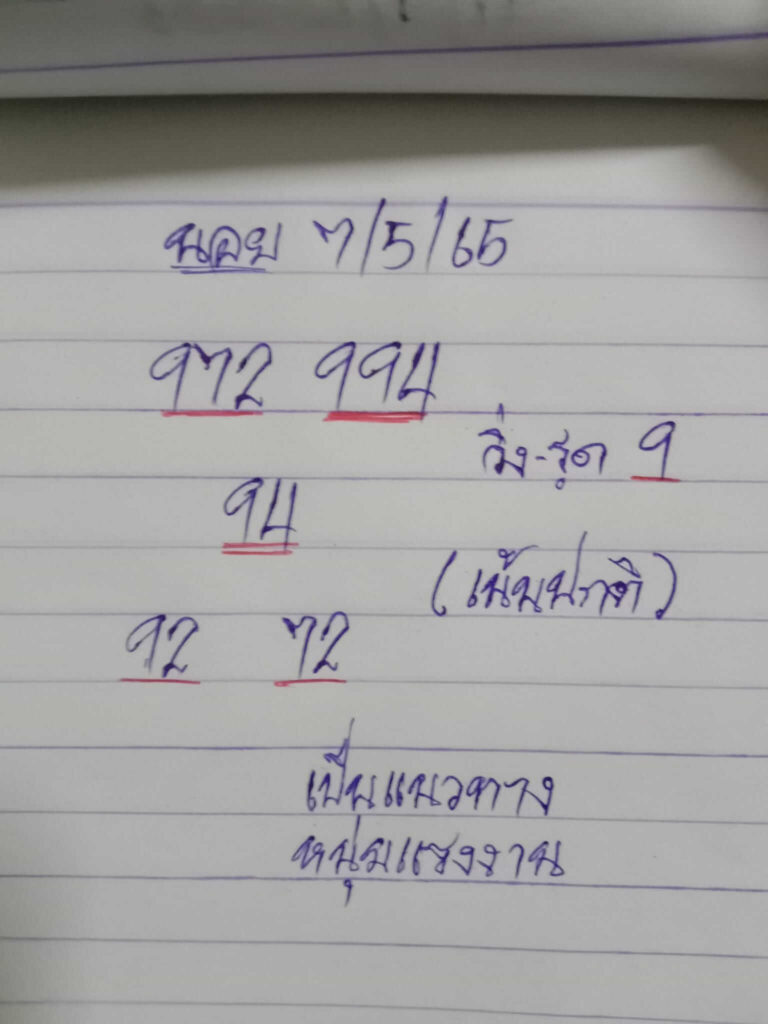 นอย 7/5/65
972 994
วิ่ง-รูด 9
94
(เน้นปกติ)
92 72
เป็นแนวทาง
หนุ่มแรงงาน